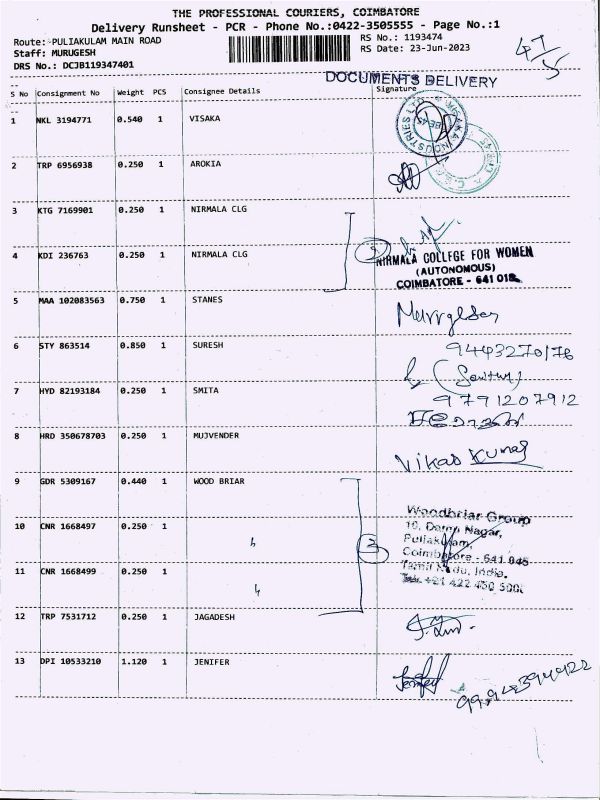 THE PROFESSIONAL COURIERS, COIMBATORE
Delivery Runsheet - PCR - Phone No.:0422-3505555 - Page No.:1
Route: PULIAKULAM MAIN ROAD
RS No.: 1193474
Staff: MURUGESH
RS Date: 23-Jun-2023
DRS No.: DCJB119347401
DOCUMENTS DELIVERY
S No Consignment No Weight PCS Consignee Details Signature
1 NKL 3194771 0.540 1 VISAKA
2 TRP 6956938 0.250 1 AROKIA
3 KTG 7169901 0.250 1 NIRMALA CLG
4 KDI 236763 0.250 1 NIRMALA CLG
NIRMALA COLLEGE FOR WOMEN
(AUTONOMOUS)
COIMBATORE - 641 018.
5 MAA 102083563 0.750 1 STANES
6 STY 863514 0.850 1 SURESH
9443270176
7 HYD 82193184 0.250 1 SMITA
9791207912
8 HRD 350678703 0.250 1 MUJVENDER
Vikas Kumar
9 GDR 5309167 0.440 1 WOOD BRIAR
Woodbriar Group
10 CNR 1668497 0.250 1
Puliakulam,
Coimbatore - 641 045
11 CNR 1668499 0.250 1
Tamil Nadu, India.
12 TRP 7531712 0.250 1 JAGADESH
13 DPI 10533210 1.120 1 JENIFER